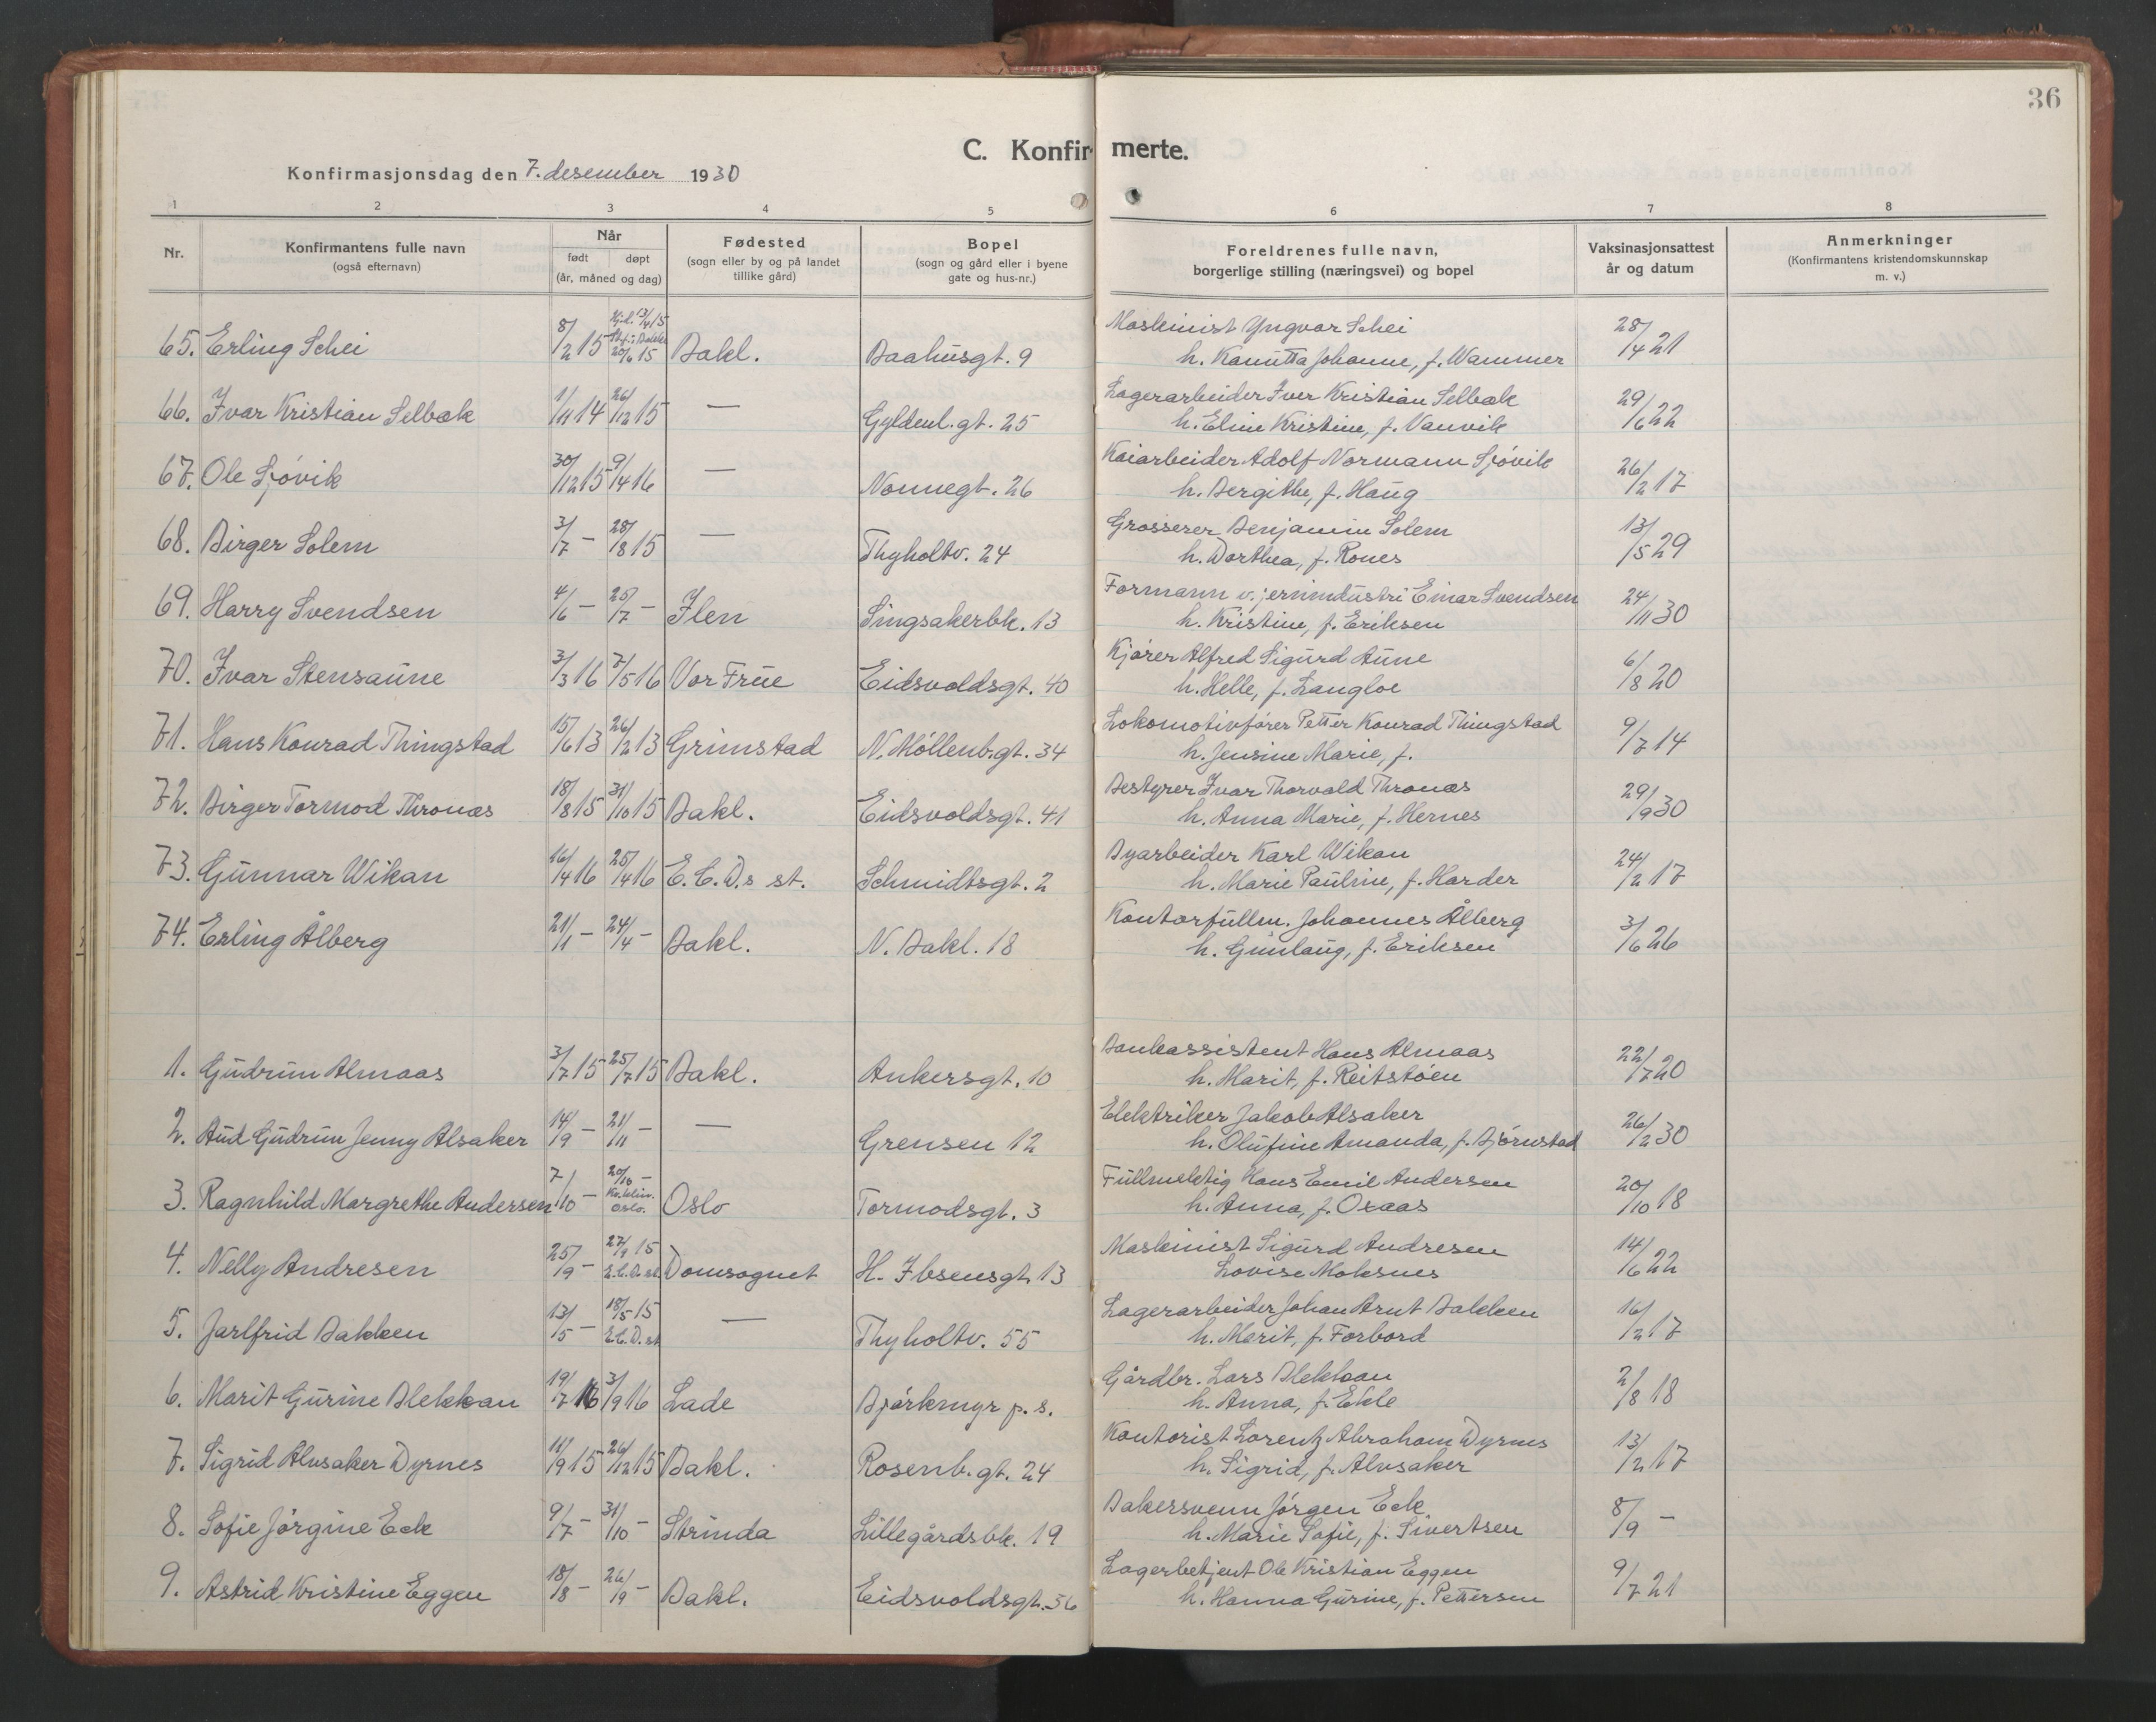 36
C. Konfirmerte.
Konfirmasjonsdag den 7. desember 1930
1 2 3 4 5 6 7 8
Nr.
Konfirmantens fulle navn
(også efternavn)
Når
født døpt
(år, måned og dag)
Fødested
(sogn eller by og på landet
tillike gård)
Bopel
(sogn og gård eller i byene
gate og hus-nr.)
Foreldrenes fulle navn,
borgerlige stilling (næringsvei) og bopel
Vaksinasjonsattest
år og datum
Anmerkninger
(Konfirmantens kristendomskunnskap
m. v.)
Maskinist Yngvar Schei
65. Erling Schei 8/2 15 20/6 15 Bakl. Baahusgt. 9 28/4 21
h. Kanutta Johanne, f. Wammer
Lagerarbeider Iver Kristian Selbæk
66. Ivar Kristian Selbæk 1/11 14 26/12 15 — Gyldenl.gt. 25 29/6 22
h. Eline Kristine, f. Vanvik
Kaiarbeider Adolf Normann Sjövik
67. Ole Sjövik 30/12 15 9/4 16 — Nonnegt. 26 26/2 17
h. Bergithe, f. Haug
Grosserer Benjamin Solem
68. Birger Solem 3/7 — 28/8 15 — Thyholtv. 24 13/5 29
h. Dorthea, f. Rones
Formann v. jernindustri Einar Svendsen
69. Harry Svendsen 4/6 — 25/7 — Ilen Singsakerbk. 13 24/11 30
h. Kristine, f. Eriksen
Kjörer Alfred Sigurd Aune
70. Ivar Stensaune 3/3 16 7/5 16 Vor Frue Eidsvoldsgt. 40 6/8 20
h. Helle, f. Langloe
Lokomotivfører Petter Konrad Thingstad
71. Hans Konrad Thingstad 15/6 13 26/12 13 Grimstad N. Möllenb.gt. 34 9/7 14
h. Jensine Marie, f.
Bestyrer Ivar Thorvald Thronæs
72. Birger Tormod Thronæs 18/8 15 31/10 15 Bakl. Eidsvoldsgt. 41 29/9 30
h. Anna Marie, f. Hernes
Byarbeider Karl Wikan
73. Gunnar Wikan 16/4 16 25/4 16 E.C.D.s st. Schmidtsgt. 2 24/2 17
h. Marie Pauline, f. Harder
Kontorfullm. Johannes Ålberg
74. Erling Ålberg 21/1 — 24/4 — Bakl. N. Bakl. 18 3/6 26
h. Gunlaug, f. Eriksen
Bankassistent Hans Almaas
1. Gudrun Almaas 3/7 15 25/7 15 Bakl. Ankersgt. 10 22/7 20
h. Marit, f. Reitstöen
Elektriker Jakob Alsaker
2. Aud Gudrun Jenny Alsaker 14/9 — 21/11 — — Grensen 12 26/2 30
h. Olufine Amanda, f. Björnstad
Fullmektig Hans Emil Andersen
3. Ragnhild Margrethe Andersen 7/10 — 20/10 — Kv.klin. Oslo. Oslo Tormodsgt. 3 20/10 18
h. Anna, f. Oxaas
Maskinist Sigurd Andresen
4. Nelly Andresen 25/9 — 27/9 15 E.C.D. st Domsognet H. Ibsensgt. 13 14/6 22
Lovise Moksnes
Lagerarbeider Johan Arnt Bakken
5. Jarlfrid Bakken 13/5 — 18/5 15 E.C.D. st — Thyholtv. 55 16/2 17
h. Marit, f. Forbord
Gårdbr. Lars Blekkan
6. Marit Gurine Blekkan 19/7 16 3/9 16 Lade Björkmyr p. s. 2/8 18
h. Anna, f. Ekle
Kontorist Lorentz Abraham Dyrnes
7. Sigrid Alvsaker Dyrnes 11/9 15 26/12 15 Bakl. Rosenb.gt. 24 13/2 17
h. Sigrid, f. Alvsaker
Bakersvenn Jörgen Eek
8. Sofie Jörgine Eek 9/7 — 31/10 — Strinda Lillegårdsbk. 19 8/9 —
h. Marie Sofie, f. Sivertsen
Lagerbetjent Ole Kristian Eggen
9. Astrid Kristine Eggen 18/8 — 26/9 — Bakl. Eidsvoldsgt. 56 9/7 21
h. Hanna Gurine, f. Pettersen